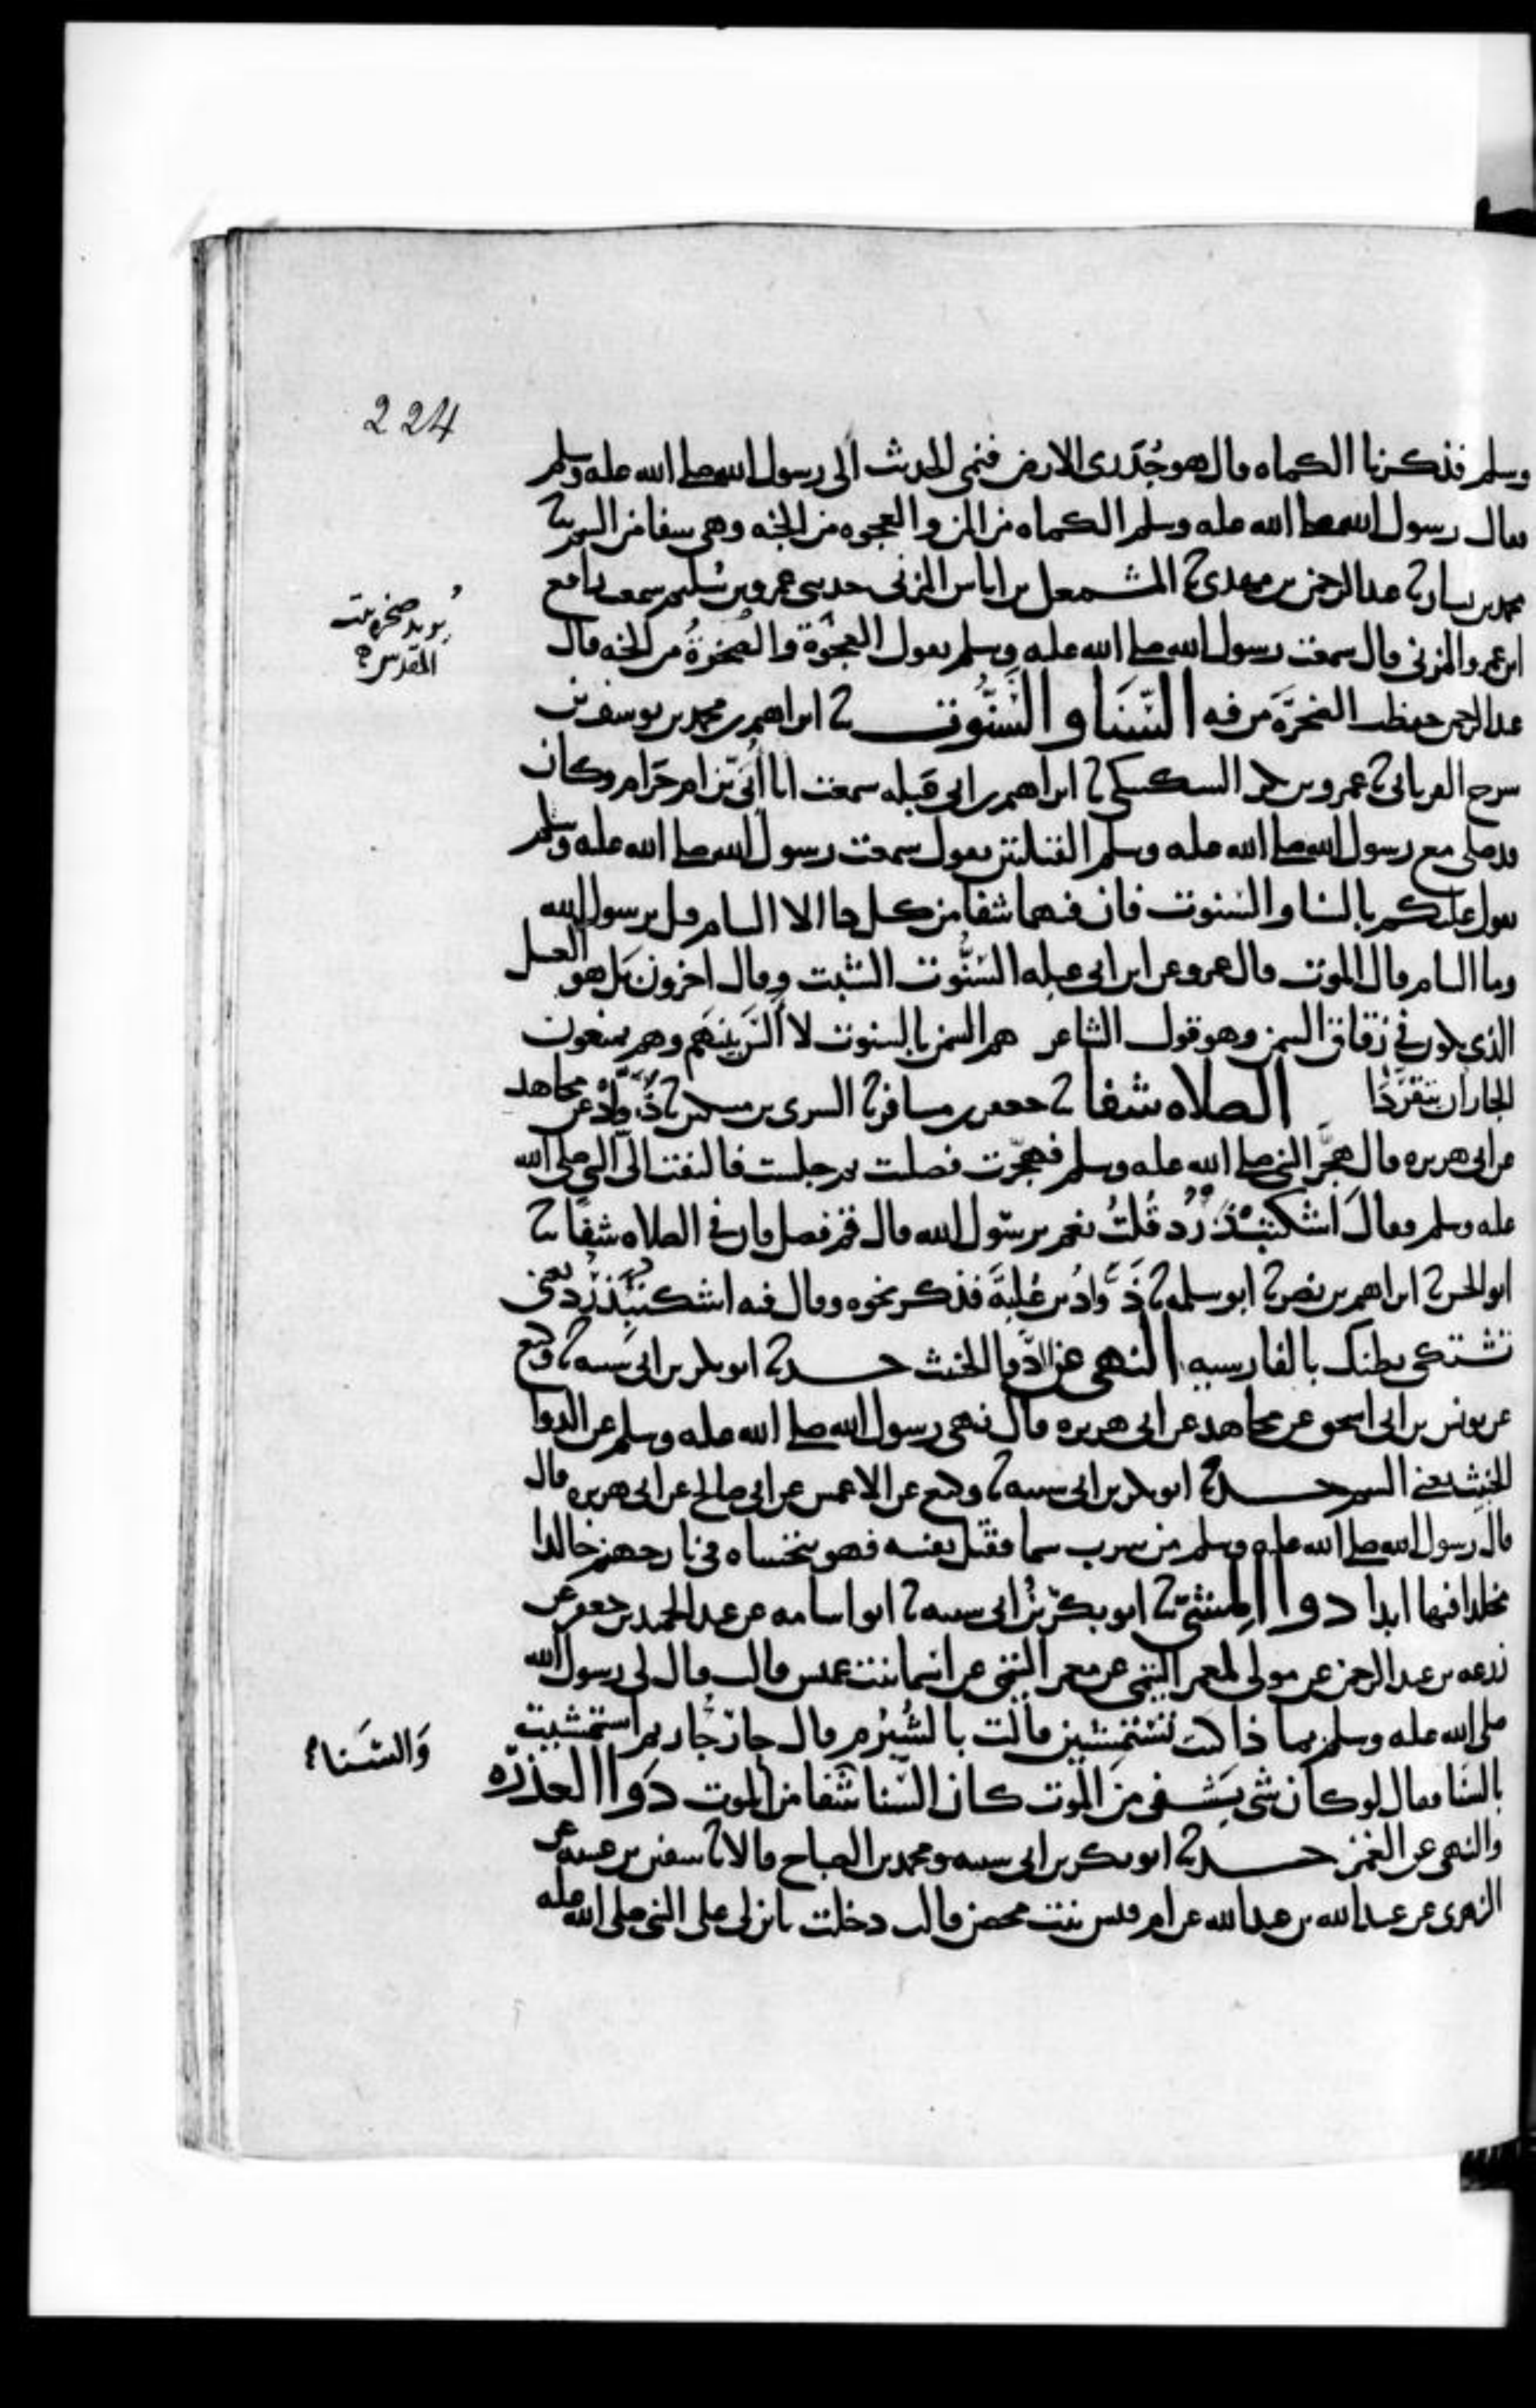 224
وسلم فذكرنا الكماه فقال هو جُدَرى الارض فنمى الحديث الى رسول الله صلى الله عليه وسلم
فقال رسول الله صلى الله عليه وسلم الكماه من المن والعجوه من الجنه وهى شفا من السم
محمد بن بشار عبد الرحمن بن مهدى المشمعل بن اياس المزنى حدثنى عمرو بن سُليم سمعت رافع
يُريد صخره بيت
المقدس
ابن عمرو المزنى قال سمعت رسول الله صلى الله عليه وسلم يقول العجْوَة والصخرةُ من الجنه قال
عبد الرحمن حفظت الصخرَة من فيه السَّنَا والسَّنُّوت ابراهيم بن محمد بن يوسف بن
سرح الفريابى عمرو بن بكر السكسكى ابراهيم بن ابى عبله سمعت ابا اُبَىّ بن ام حَرَام وكان
قد صلى مع رسول الله صلى الله عليه وسلم القبلتين يقول سمعت رسول الله صلى الله عليه وسلم
يقول عليكم بالسنا والسنوت فان فيهما شفا من كل دا الا السام قيل يرسول الله
وما السام قال الموت قال عمرو عن ابن ابى عبله السَنُّوت الشبت وقال اخرون بَل هو العسل
الذى يكون فى زقاق السمن وهو قول الشاعر هم السمن بالسنوت لا اَلْسَ بَينَهم وهم يمنعون
الجار ان يتقرَّدَا الصلاه شفا جعفر بن مسافر السرى بن مسكين ذَوّادْ عن مجاهد
عن ابى هريره قال هَجَّر النبى صلى الله عليه وسلم فهجَّرت فصليت ثم جلست فالتفت الىّ النبى صلى الله
عليه وسلم وقالَ اشكنبْ دَرْدْ قُلتُ نعم يرسول الله قال قم فصل فان فى الصلاه شفًا
ابو الحسن ابراهيم بن نصر ابو سلمه ذَوَّادُ بن عُلبَةَ فذكر نحوه وقال فيه اشكنبْ دَرْدْ يعنى
تشتكى بطنك بالفارسيه النهى عن الدَّوا الخبيث حدثنا ابو بكر بن ابى شيبه وكيع
عن يونس بن ابى اسحق عن مجاهد عن ابى هريره قال نهى رسول الله صلى الله عليه وسلم عن الدوا
الخبيث يعنى السم حدثنا ابو بكر بن ابى شيبه وكيع عن الاعمش عن ابى صالح عن ابى هريره قال
قال رسول الله صلى الله عليه وسلم من شرب سما فقتل نفسه فهو يتحساه فى نار جهنم خالدا
مخلدا فيها ابدا دوا المشىّ ابو بكر بنُ ابى شيبه ابو اسامه عن عبد الحميد بن جعفر عن
زرعه بن عبد الرحمن عن مولى لمعمر التيمى عن معمر التيمى عن اسما بنت عميس قالت قال لى رسول الله
صلى الله عليه وسلم بما ذا كنت تَستمشين قالت بالشُبْرُم قال حارّ جُار ثم استمشيت
وَالسَنا
بالسَنا فقال لو كان شى يَشفى منَ الموت كان السّنا شَفا من الموت دَوا العذره
والنهى عن الغمز حدثنا ابو بكر بن ابى شيبه ومحمد بن الصباح قالا سفين بن عيينه عن
الزهرى عن عبيد الله بن عبد الله عن ام قيس بنت محصن قالت دخلت بابن لى على النبى صلى الله عليه